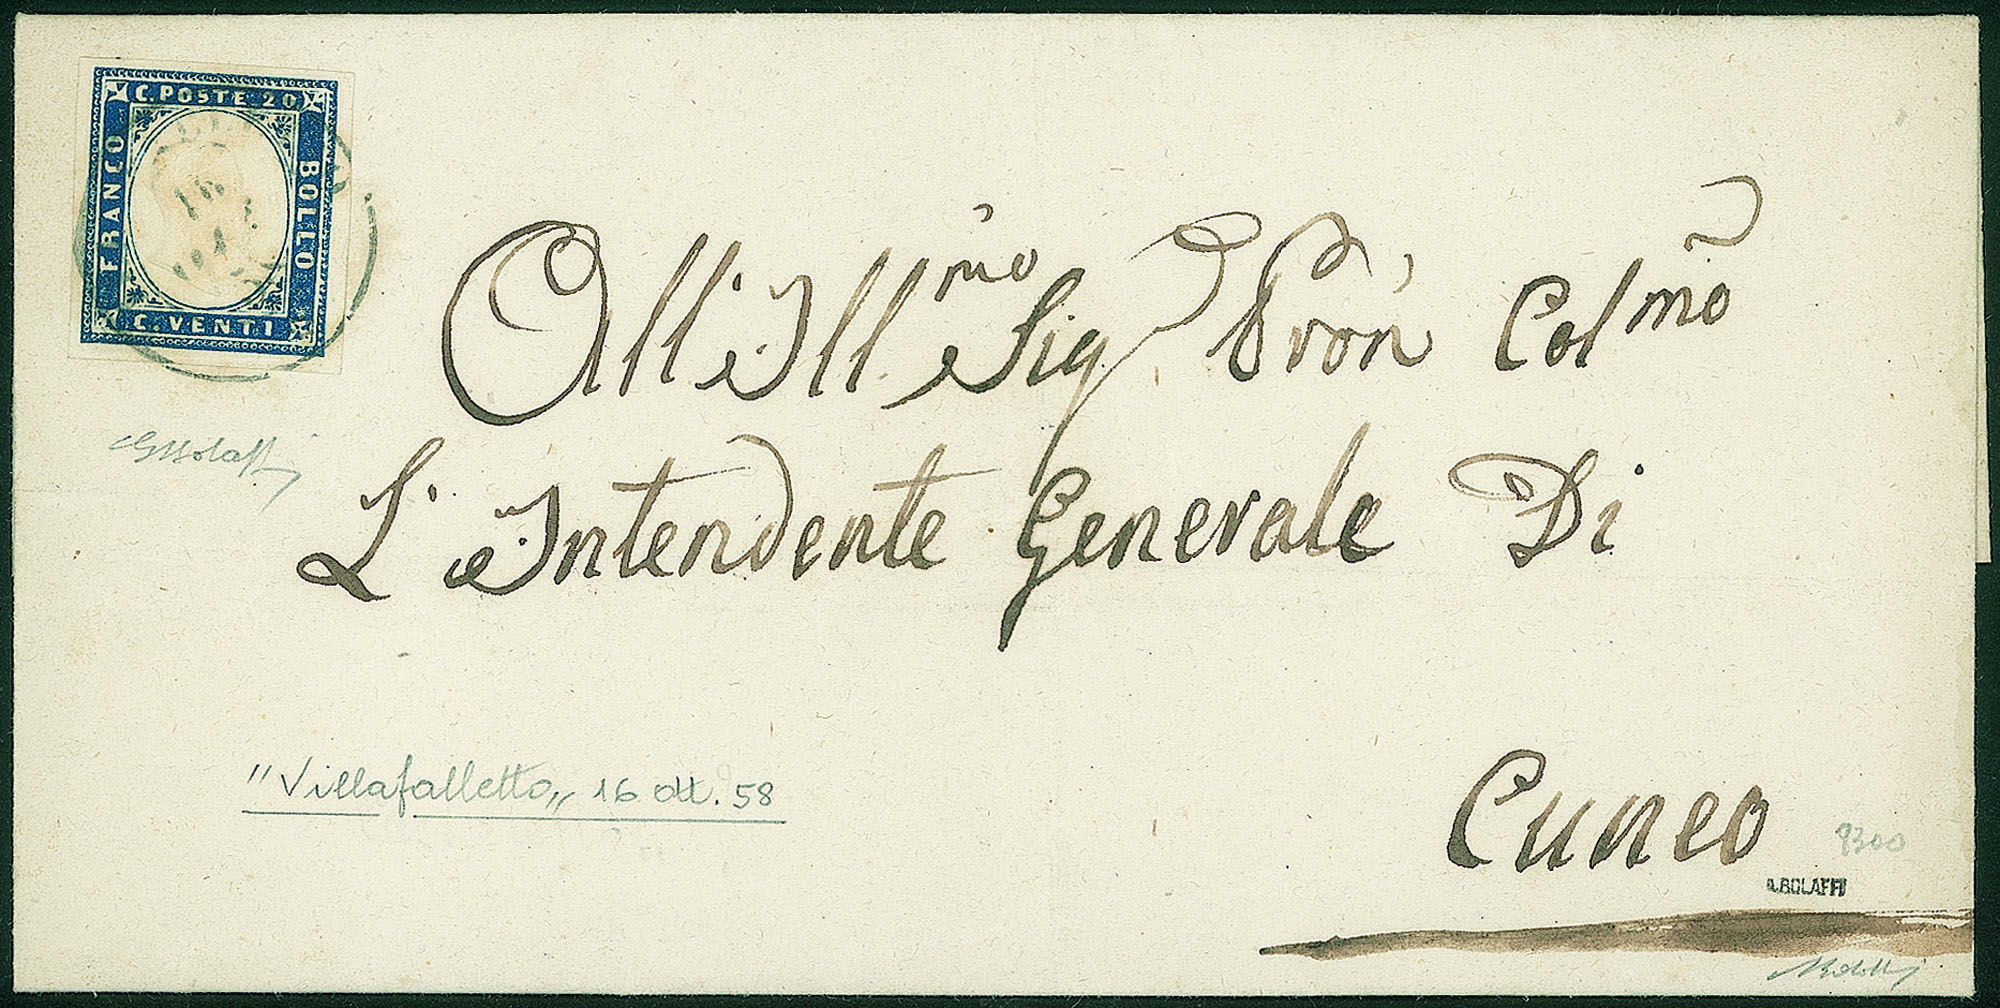 C. POSTE 20
FRANCO
BOLLO
C. VENTI
16
All' Ill.mo Sig Pron Colmo
L'Intendente Generale Di
"Villafalletto„ 16 ott. 58
Cuneo
9300
A. BOLAFFI